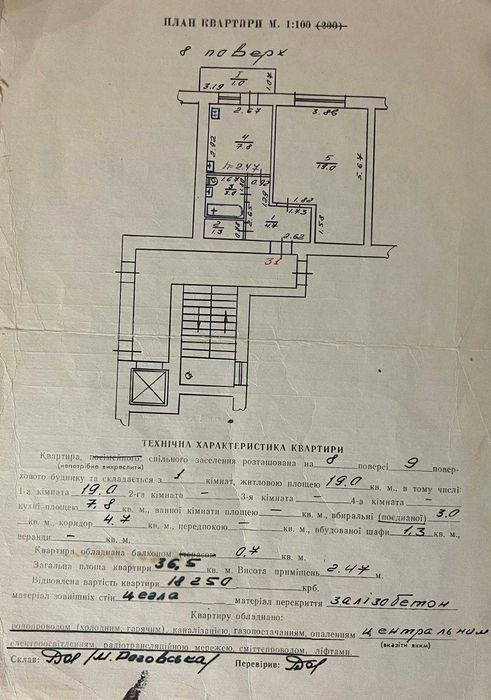 ПЛАН КВАРТИРИ М. 1:100 (200)
8 поверх
I
1.0
3.19
1.07
2.67
3.86
4
7.8
2.92
h=2.47
5
19.0
5.67
1.67
0.92
3
3.0
1.29
1.82
1.73
2.65
1
4.7
1.58
2
1.3
0.88
2.62
31
ТЕХНІЧНА ХАРАКТЕРИСТИКА КВАРТИРИ
Квартира, посімейного, спільного заселення розташована на 8 поверсі 9 повер-
(непотрібне викреслити)
хового будинку та складається з 1 кімнат, житловою площею 19.0 кв. м., в тому числі:
1-а кімната 19.0 2-га кімната — 3-я кімната — 4-а кімната —
кухні площею 7,8 кв. м., ванної кімнати площею — кв. м., вбиральні (поєднаної) 3.0
кв. м., коридор 4.7 кв. м., передпокою — кв. м., вбудованої шафи 1,3 кв. м.,
веранди — кв. м.
Квартира обладнана балконом (терасою) 0,7 кв. м.
Загальна площа квартири 36,5 кв. м. Висота приміщень 2.47 м.
Відновлена вартість квартири 18250 крб.
матеріал зовнішніх стін цегла матеріал перекриття залізобетон
Квартиру обладнано:
водопроводом (холодним, гарячим), каналізацією, газопостачанням, опаленням центральним
(вказати яким)
електроосвітленням, радіотрансляційною мережею, сміттєпроводом, ліфтами.
Склав: Перевірив: